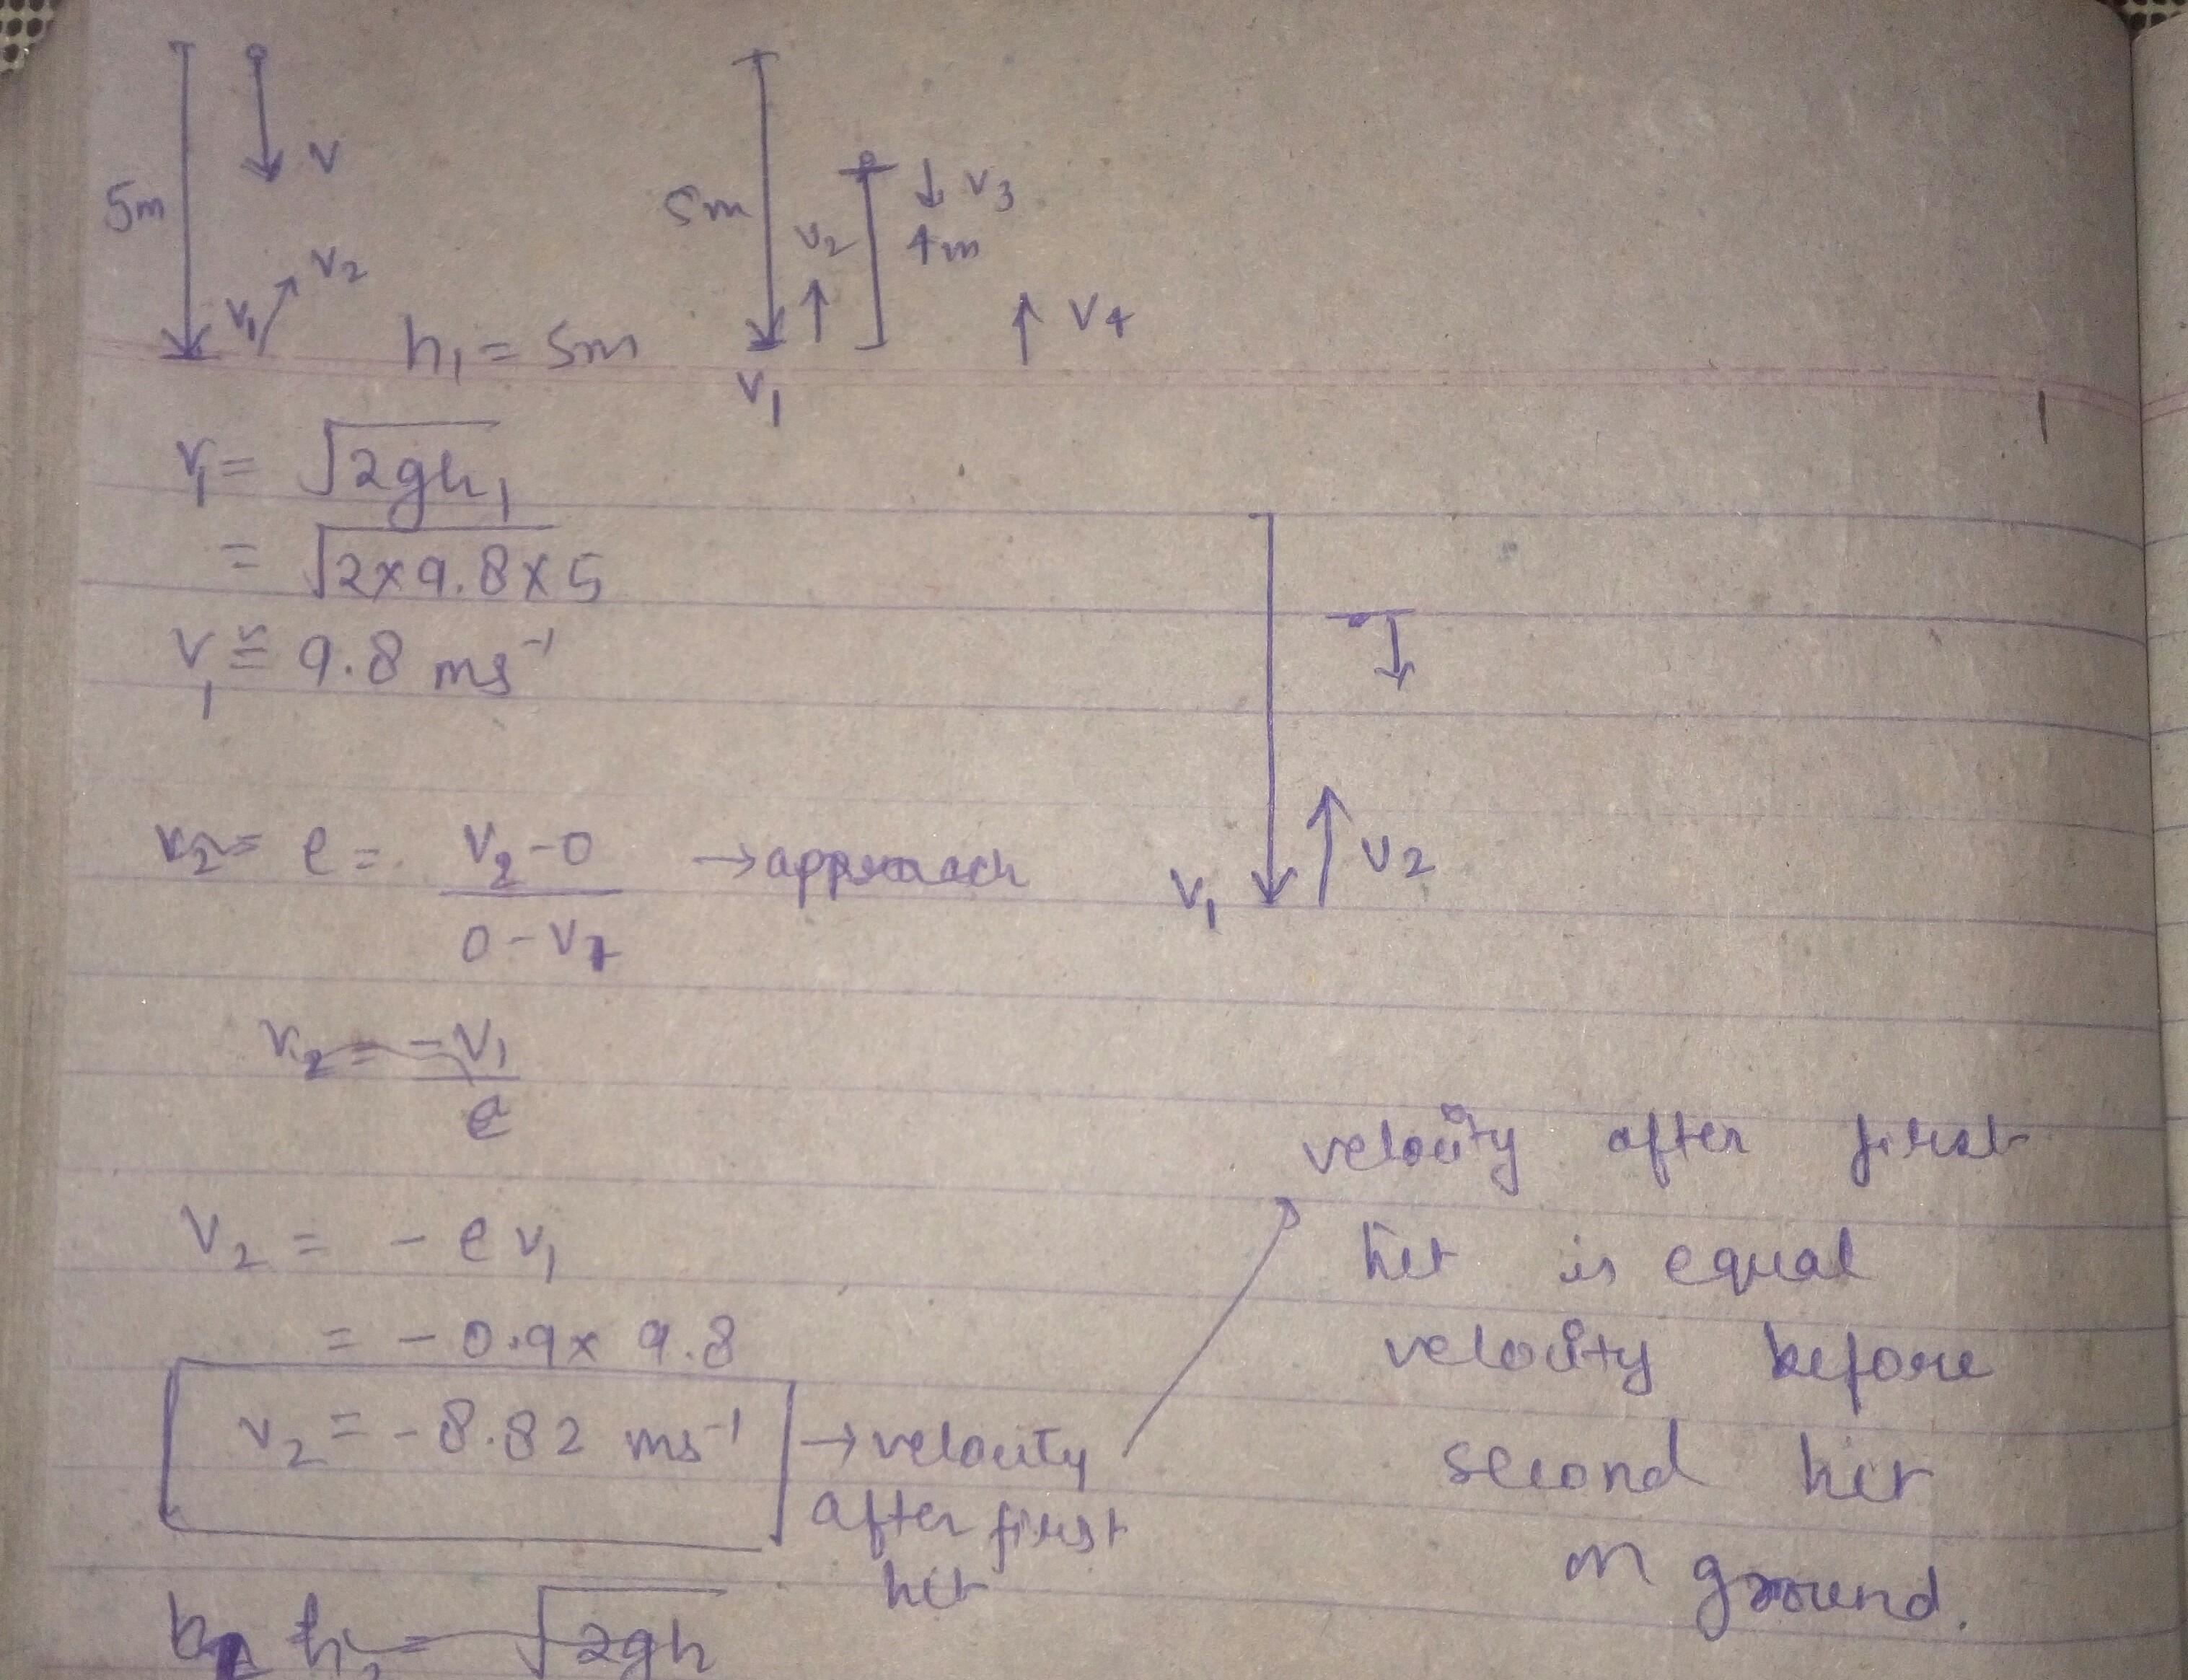 5m
v
v₂
v₁
h₁ = 5m
5m
v₂
v₃
4m
v₄
v₁
v₁ = √2gh₁
= √2×9.8×5
v₁ ≅ 9.8 ms⁻¹
v₂ = e = (v₂-0)/(0-v₁) → approach
v₁ v₂
v₂ = -v₁/e
v₂ = - e v₁
= - 0.9× 9.8
v₂ = - 8.82 ms⁻¹ → velocity
after first
hit
velocity after first
hit is equal
velocity before
second hit
on ground.
h₂ = √2gh